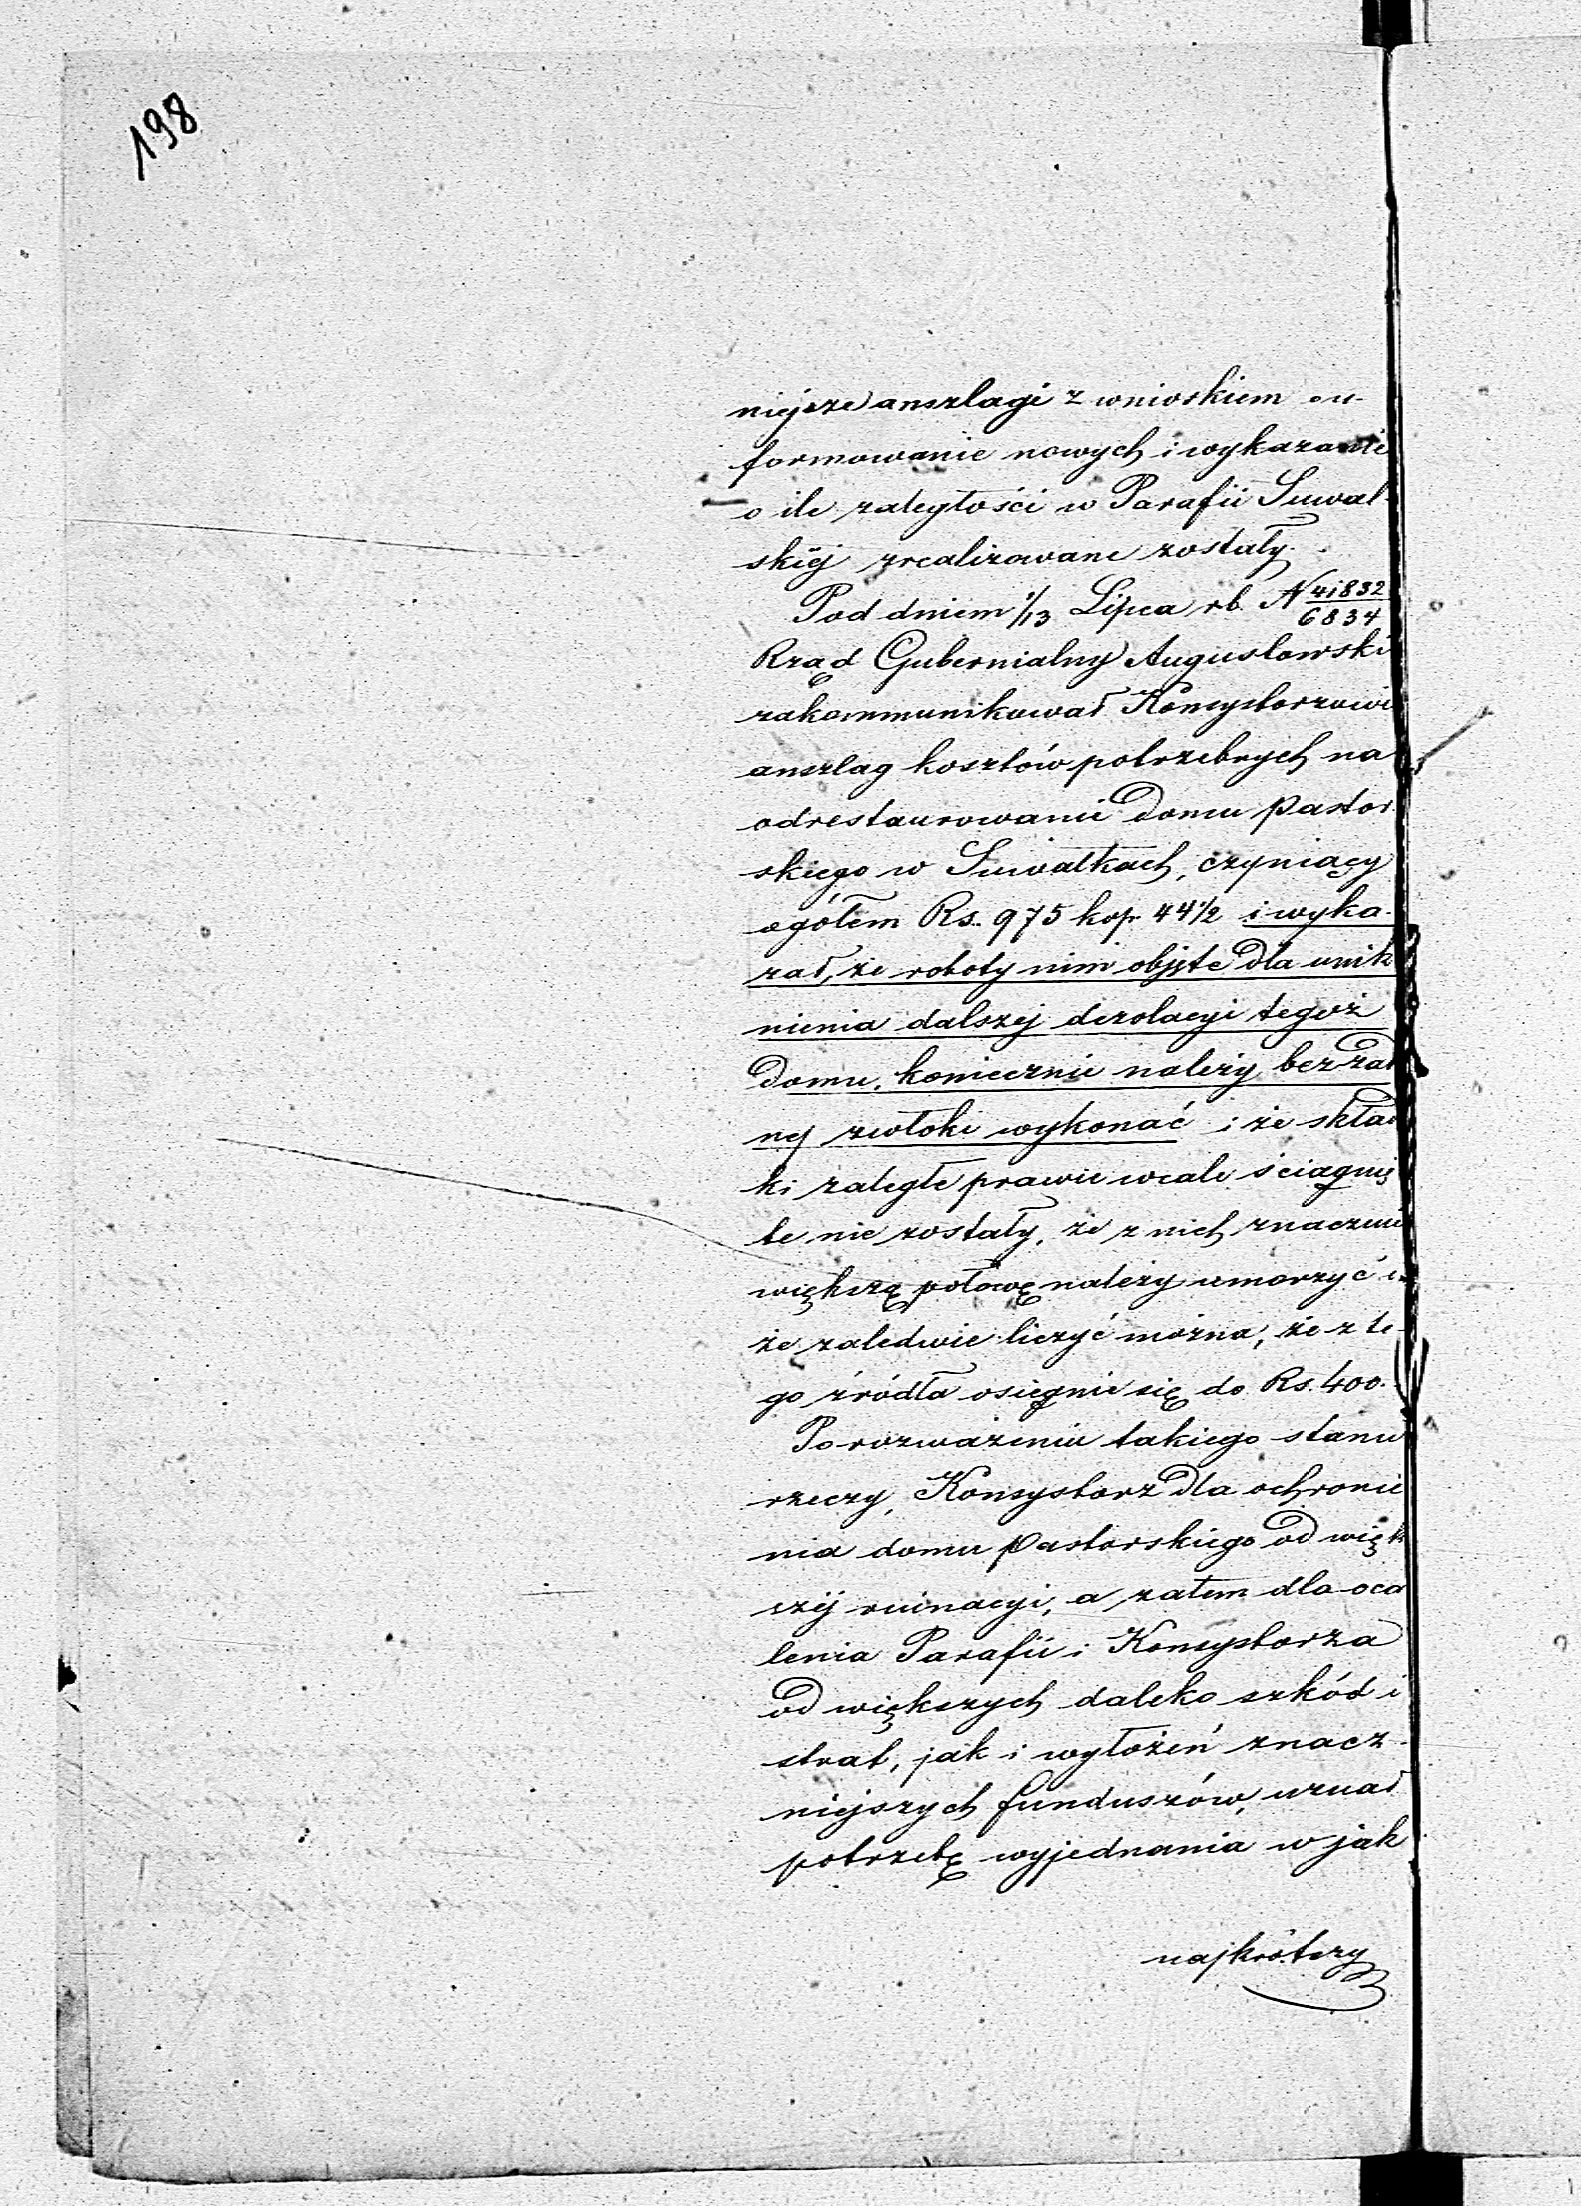 198
niejsze anszlagi z wnioskiem o u-
formowanie nowych i wykazanie
o ile zaległości w Parafii Suwal-
skiéj zrealizowane zostały.
Pod dniem 1/13 Lipca rb. N 41832/6834
Rząd Gubernialny Augustowski
zakommunikował Konsystorzowi
anszlag kosztów potrzebnych na
odrestaurowanie Domu Pastor-
skiego w Suwałkach, czyniący
ogółem Rs. 975 kop. 44 1/2 i wyka-
zał, że roboty nim objęte dla unik
nienia dalszej dezolacyi tegoż
Domu, koniecznie należy bez żad
nej zwłoki wykonać i że skład
ki zaległe prawie wcale ściągnię
te nie zostały, że z nich znacznie
większą połowę należy umorzyć i
że zaledwie liczyć można, że z te-
go źródła osięgnie się do Rs. 400.
Po rozważeniu takiego stanu
rzeczy, Konsystorz dla ochronie
nia domu Pastorskiego od więk
széj ruinacyi, a zatem dla oca
lenia Parafii i Konsystorza
od większych daleko szkód i
strat, jak i wyłożeń znacz-
niejszych funduszów, uznał
potrzebę wyjednania w jak
najkrótszy